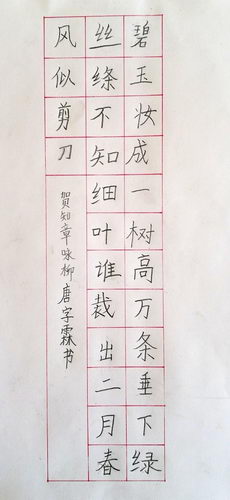 碧玉妆成一树高万条垂下绿
丝绦不知细叶谁裁出二月春
风似剪刀
賀知章咏柳唐字霖书